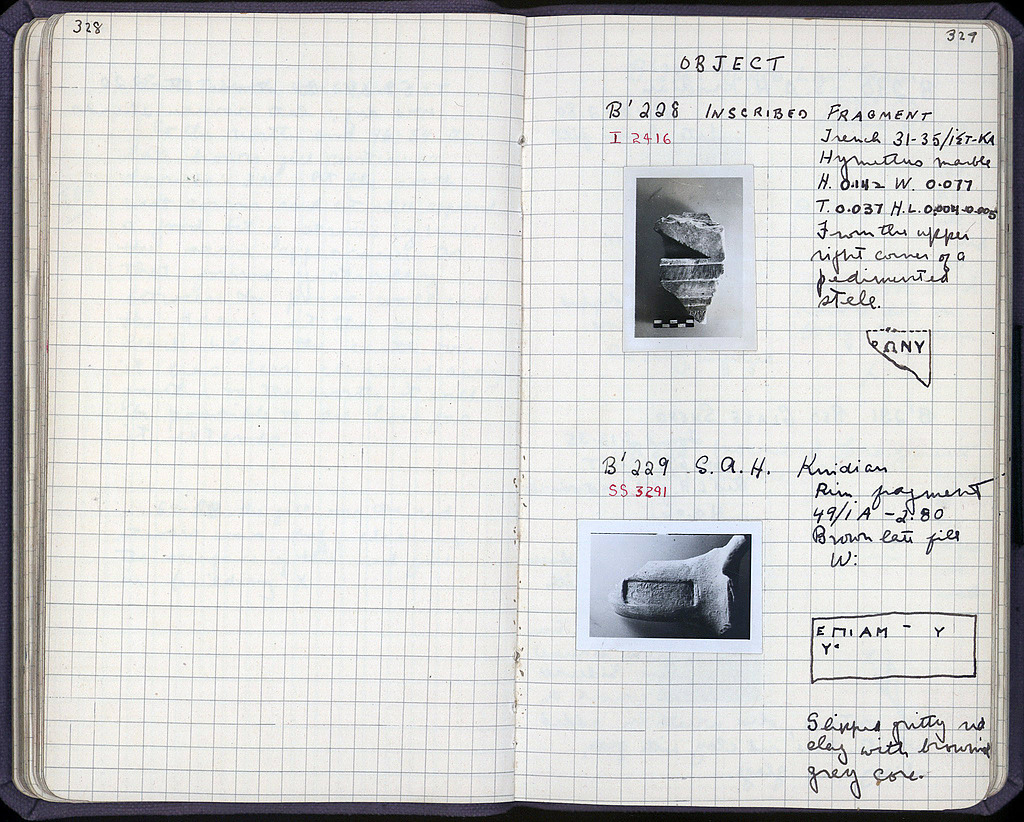 328
329
OBJECT
B' 228 INSCRIBED FRAGMENT
I 2416
Trench 31-35/
Hymettus marble
H. 0.142 W. 0.077
T. 0.037 H.L. 0.004-0.005
From the upper
right corner of a
pedimented
stele.
ΩNY
B' 229 S.A.H. Knidian
SS 3291
Rim fragment
49/1A -2.80
Brown late fill
W:
ΕΠΙΑΜ - Υ
Υ•
Slipped gritty red
clay with brownish
grey core.